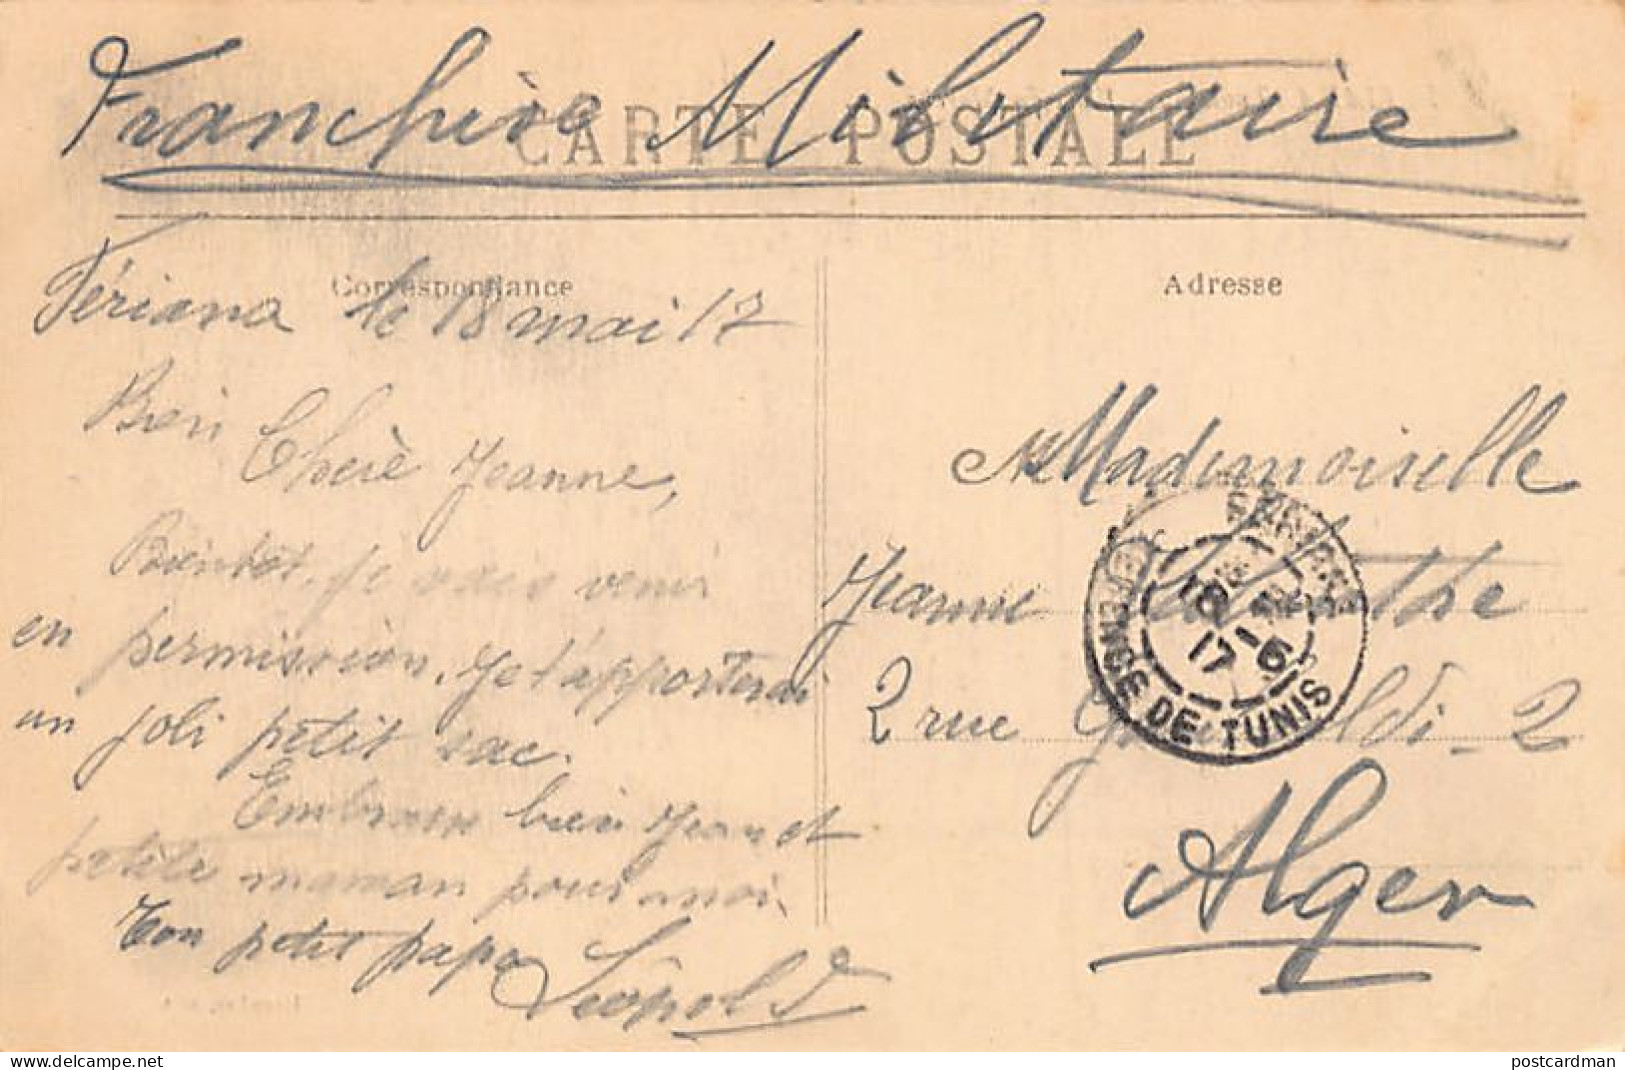 Franchise Militaire
CARTE POSTALE
Correspondance
Adresse
Fériana le 18 mai 17
Bien
Chère Jeanne,
Bientot, je vais venir
en permission. Je t'apporterai
un joli petit sac.
Embrasse bien Jean et
petite maman pour moi.
Ton petit papa
Léopold
Mademoiselle
Jeanne
2 rue 2
Alger
18
17 -5
DE TUNIS
delcampe.net
postcardman